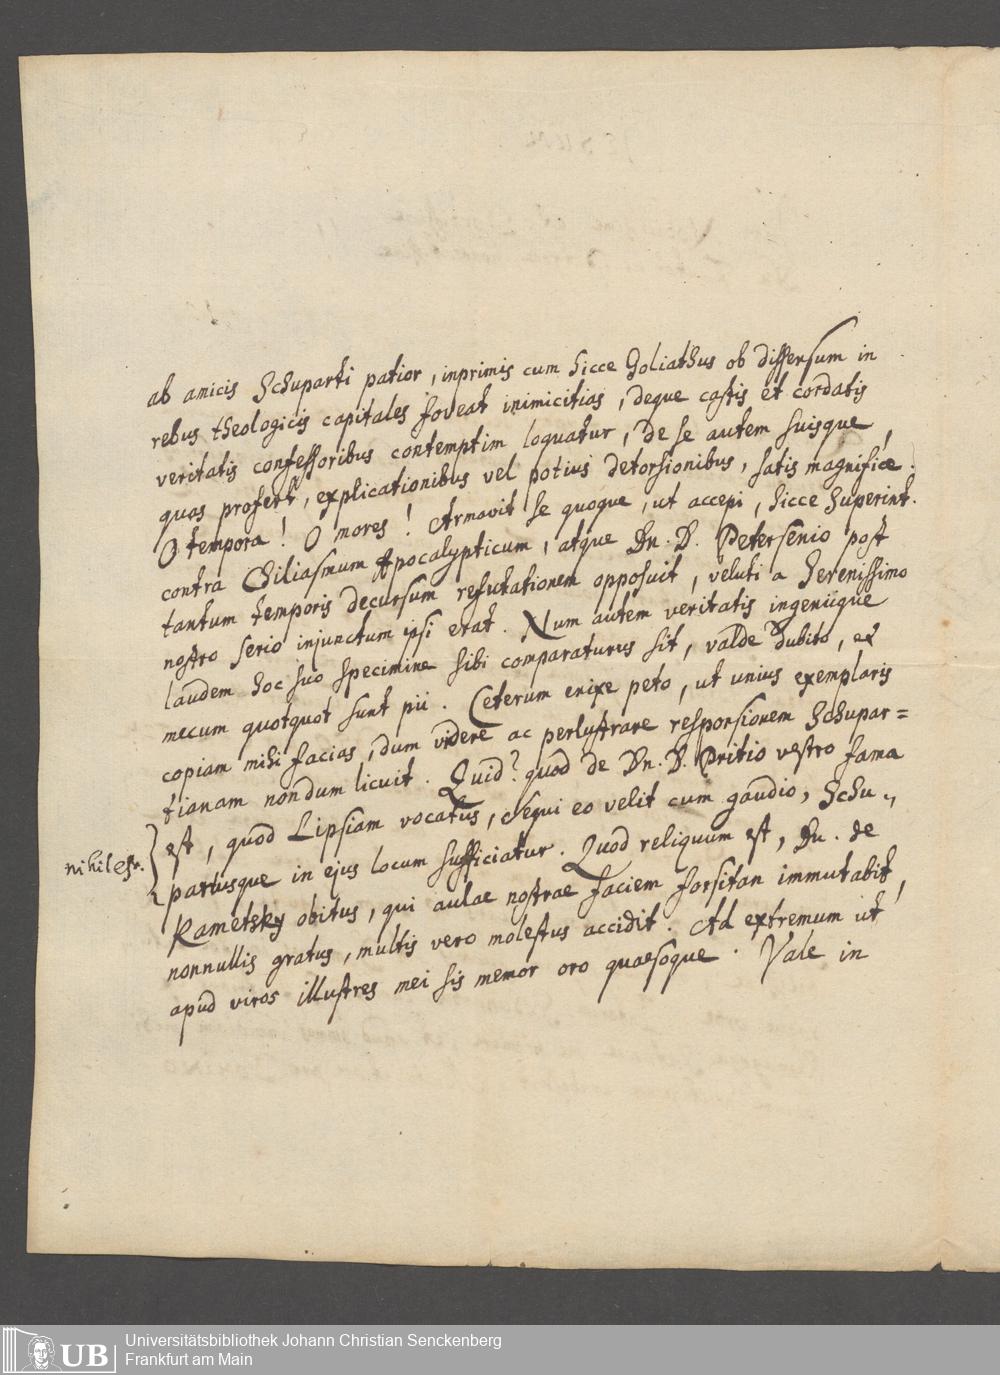 ab amicis Schuparti patior, inprimis cum hicce Goliathus ob dissensum in
rebus theologicis capitales foveat inimicitias, deque castis et cordatis
veritatis confessoribus contemptim loquatur, de se autem suisque,
quas profert, explicationibus vel potius detorsionibus, satis magnifice.
O tempora! O mores! Armavit se quoque, ut accepi, hicce Superint.
contra Chiliasmum Apocalypticum, atque Dn. D. Petersenio post
tantum temporis decursum refutationem opposuit, veluti a Serenissimo
nostro serio injunctum ipsi erat. Num autem veritatis ingeniique
laudem hoc suo specimine sibi comparaturus sit, valde dubito, et
mecum quotquot sunt pii. Ceterum enixe peto, ut unius exemplaris
copiam mihi facias, dum videre ac perlustrare responsionem Schupar=
tianam nondum licuit. Quid? quod de Dn. D. Pritio vestro fama
est, quod Lipsiam vocatus, sequi eo velit cum gaudio, Schu-
nihil est.
partusque in ejus locum sufficiatur. Quod reliquum est, Dn. de
Kametsky obitus, qui aulae nostrae faciem forsitan immutabit,
nonnullis gratus, multis vero molestus accidit. Ad extremum ut
apud viros illustres mei sis memor oro quaesoque. Vale in
UB
Universitätsbibliothek Johann Christian Senckenberg
Frankfurt am Main